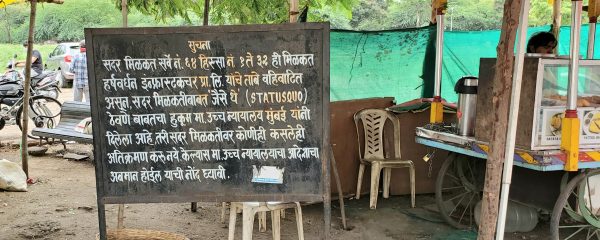 सुचना
सदर मिळकत सर्वे नं. ६४ हिस्सा नं १ ते ३२ ही मिळकत
हर्षवर्धन इन्फ्रास्टकचर प्रा. लि. यांचे ताबे वहिवाटित
असुन सदर मिळकतीबाबत "जैसे थे" (STATUSQUO)
ठेवणे बाबतचा हुकुम मा. उच्च न्यायालय मुंबई यानी
दिलेला आहे. तरी सदर मिळकतीवर कोणीही कसलेही
अतिक्रमण करू नये केल्यास मा. उच्च न्यायालयाचा आदेशाचा
अवमान होईल याची नोंद घ्यावी.